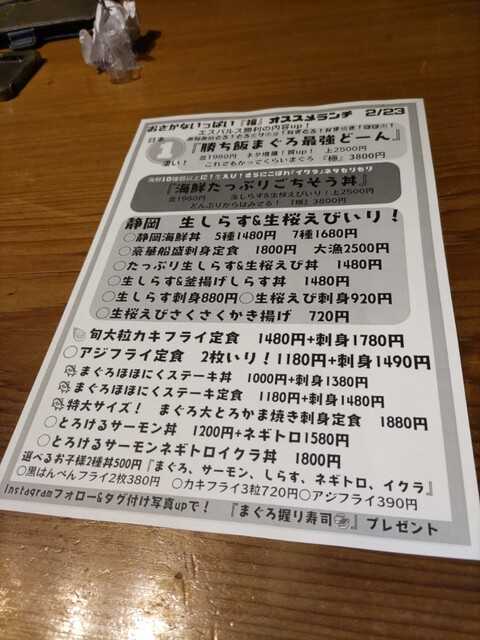 おさかないっぱい『福』オススメランチ 2/23
エスパルス勝利の内容up!
日本一
『勝ち飯まぐろ最強どーん』
並1980円 ネタ増量!質up! 上2500円
凄い! これでもかってくらいまぐろ 『極』3800円
『海鮮たっぷりごちそう丼』
並1980円 生しらす&生桜えび入り!上2500円
どんぶりからはみでる! 『極』3800円
静岡 生しらす&生桜えびいり!
○静岡海鮮丼 5種1480円 7種1680円
○豪華船盛刺身定食 1800円 大漁2500円
○たっぷり生しらす&生桜えび丼 1480円
○生しらす&釜揚げしらす丼 1480円
○生しらす刺身880円○生桜えび刺身920円
○生桜えびさくさくかき揚げ 720円
旬大粒カキフライ定食 1480円+刺身1780円
○アジフライ定食 2枚いり!1180円+刺身1490円
まぐろほほにくステーキ丼 1000円+刺身1380円
まぐろほほにくステーキ定食 1180円+刺身1480円
特大サイズ! まぐろ大とろかま焼き刺身定食 1880円
○とろけるサーモン丼 1200円+ネギトロ1580円
○とろけるサーモンネギトロイクラ丼 1800円
選べるお子様2種丼500円『まぐろ、サーモン、しらす、ネギトロ、イクラ』
○黒はんぺんフライ2枚380円 ○カキフライ3粒720円○アジフライ390円
Instagramフォロー&タグ付け写真upで! 『まぐろ握り寿司』プレゼント